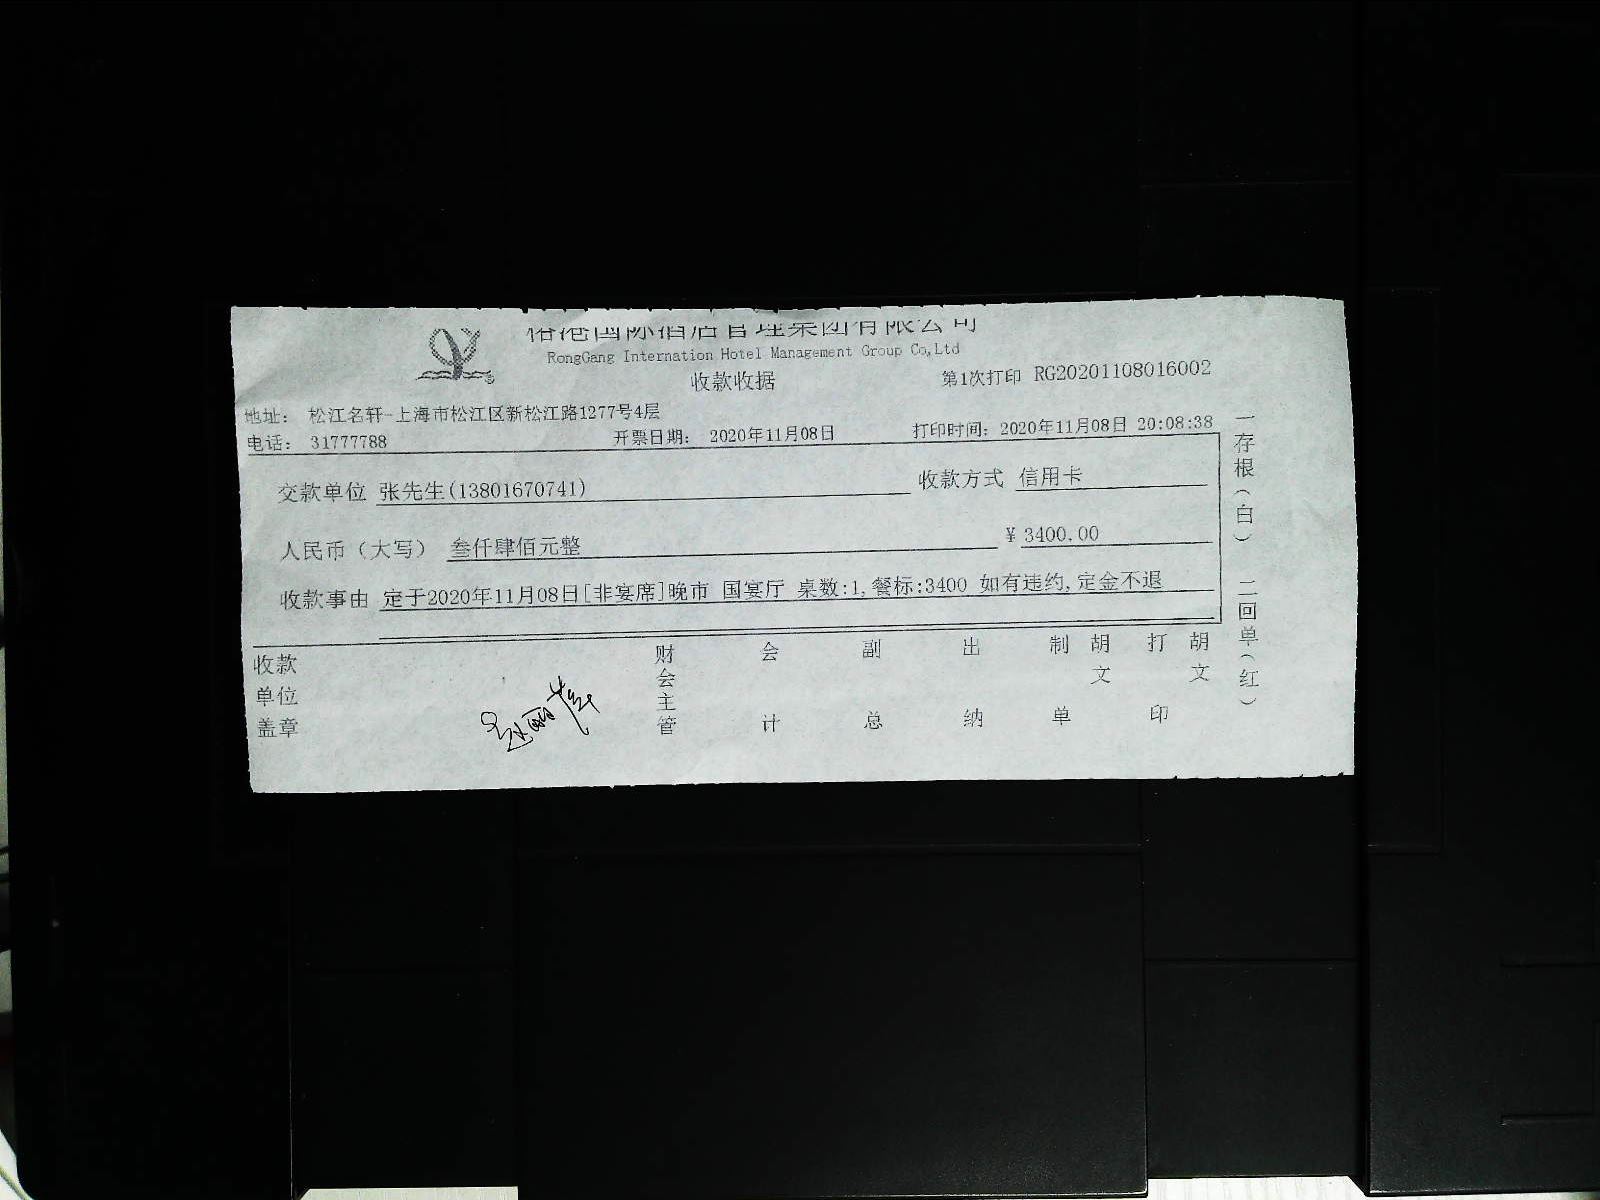 榕港国际酒店管理集团有限公司
RongGang Internation Hotel Management Group Co,Ltd
收款收据
第1次打印 RG20201108016002
地址: 松江名轩-上海市松江区新松江路1277号4层
电话: 31777788 开票日期: 2020年11月08日 打印时间: 2020年11月08日 20:08:38
交款单位 张先生(13801670741) 收款方式 信用卡
人民币（大写） 叁仟肆佰元整 ¥ 3400.00
收款事由 定于2020年11月08日[非宴席]晚市 国宴厅 桌数:1,餐标:3400 如有违约,定金不退
收款单位盖章
财会主管
会计
副总
出纳
制单 胡文
打印 胡文
一存根(白) 二回单(红)